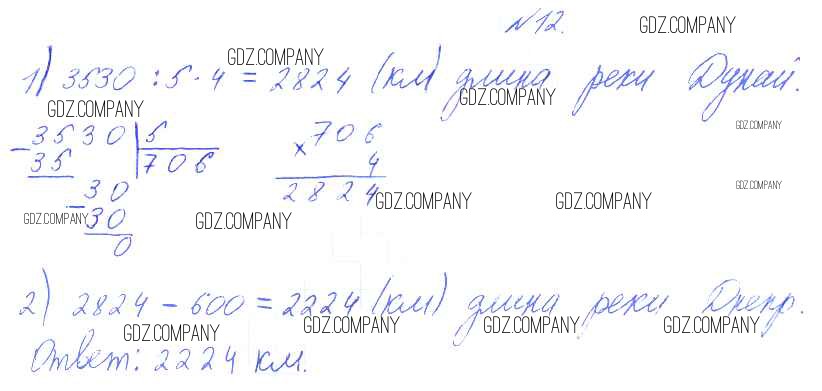 №12.
1) 3530 : 5 · 4 = 2824 (км) длина реки Дунай.
3530 | 5
35 | 706
30
30
0
706
× 4
2824
2) 2824 – 600 = 2224 (км) длина реки Днепр.
Ответ: 2224 км.
GDZ.COMPANY
GDZ.COMPANY
GDZ.COMPANY
GDZ.COMPANY
GDZ.COMPANY
GDZ.COMPANY
GDZ.COMPANY
GDZ.COMPANY
GDZ.COMPANY
GDZ.COMPANY
GDZ.COMPANY
GDZ.COMPANY
GDZ.COMPANY
GDZ.COMPANY